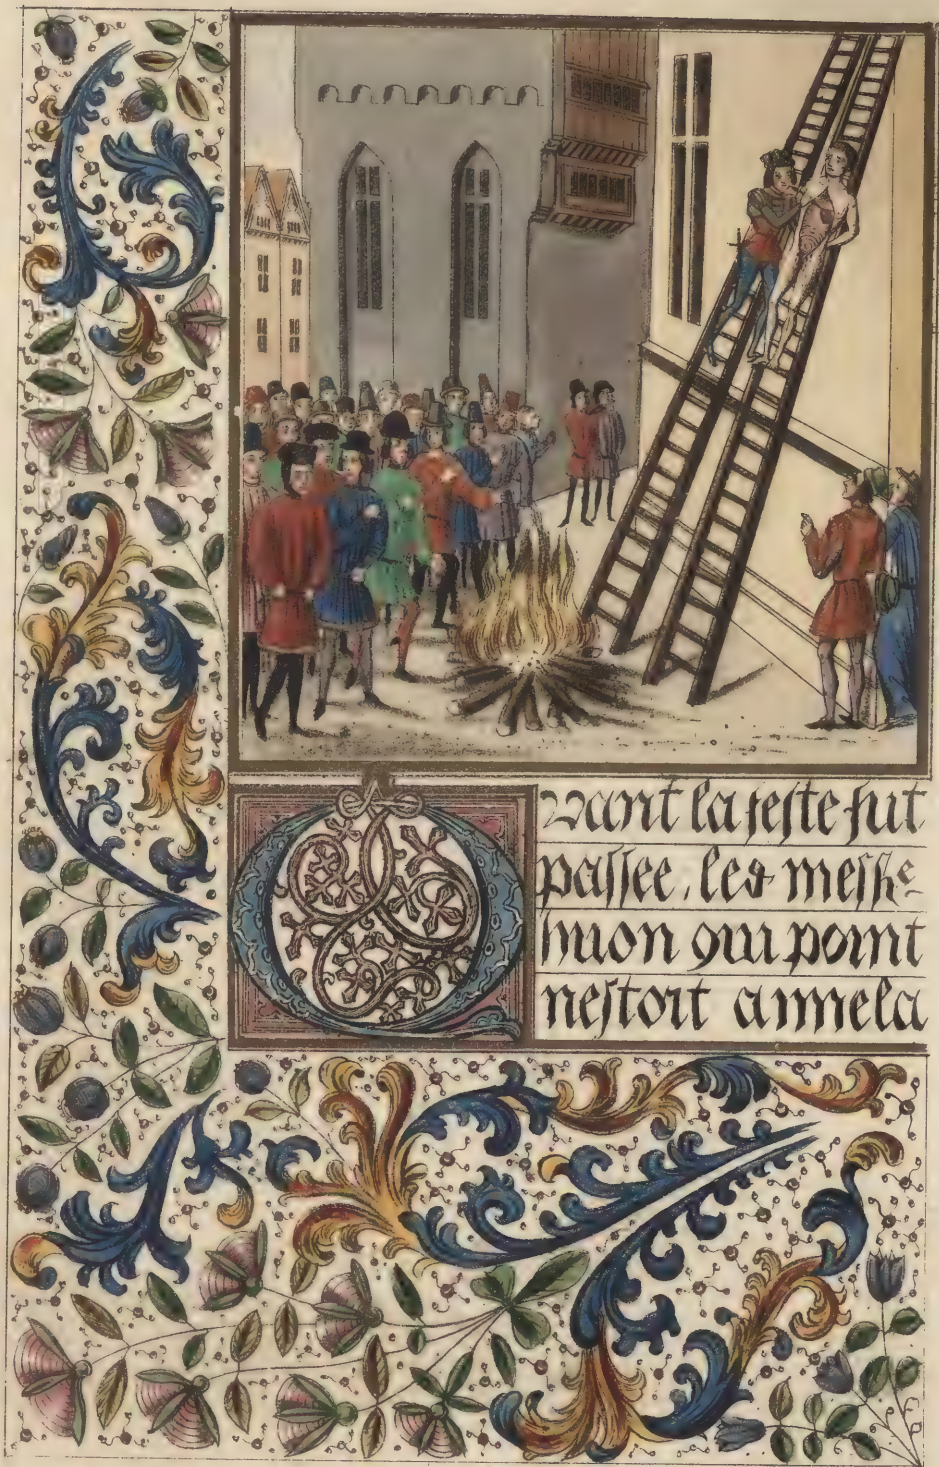 Quant la feste fut
passee, les messe
huon qui point
nestoit aimela